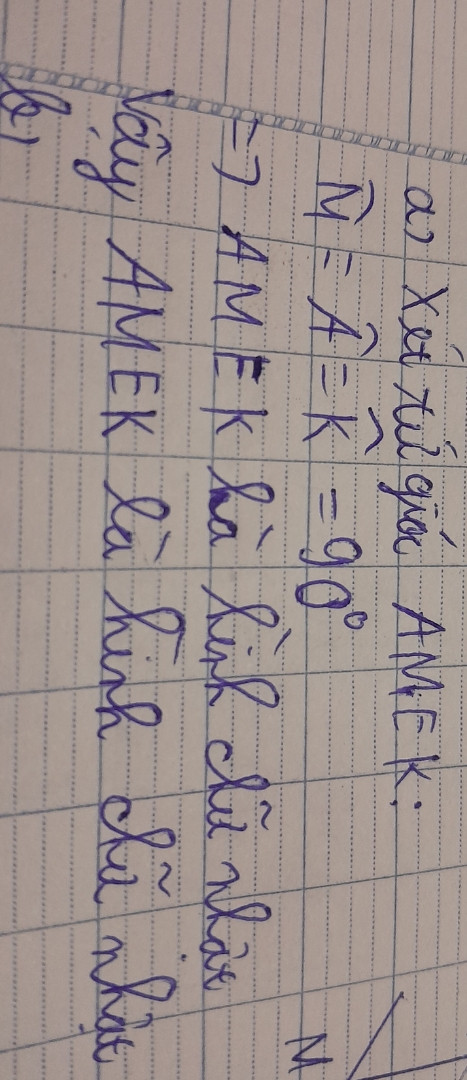 a) Xét tứ giác AMEK:
M̂ = Â = K̂ = 90°
=> AMEK là hình chữ nhật
Vậy AMEK là hình chữ nhật
b)
M